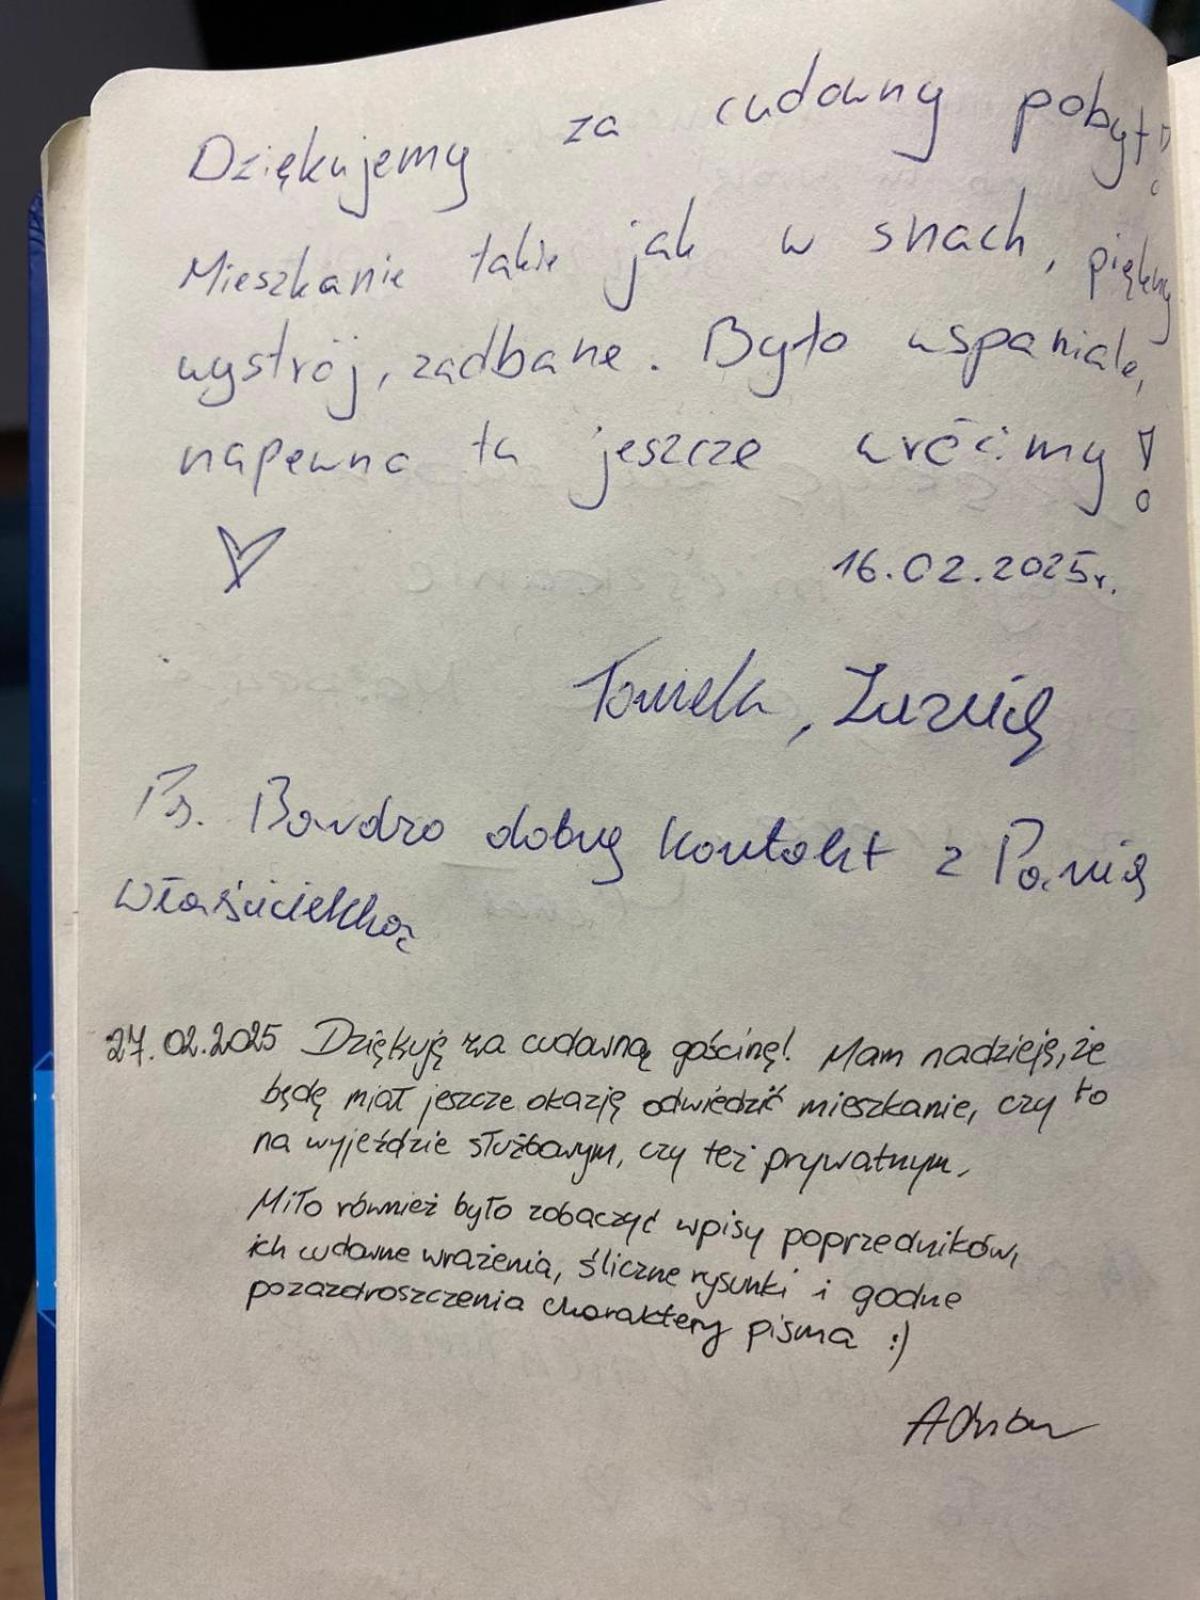 Dziękujemy za cudowny pobyt!
Mieszkanie takie jak w snach, piękny
wystrój, zadbane. Było wspaniale,
napewno tu jeszcze wrócimy!
16.02.2025r.
Tomek, Zuzia
Ps. Bardzo dobry kontakt z Panią
właścicielką
27.02.2025 Dziękuję za cudowną gościnę! Mam nadzieję, że
będę miał jeszcze okazję odwiedzić mieszkanie, czy to
na wyjeździe służbowym, czy też prywatnym.
Miło również było zobaczyć wpisy poprzedników,
ich cudowne wrażenia, śliczne rysunki i godne
pozazdroszczenia charaktery pisma :)
Adrian